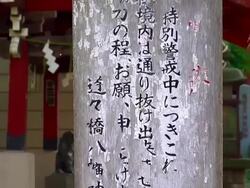 特別警戒中につきこれ
境内は通り抜け出
力の程お願い申し上げ
道々橋八幡神